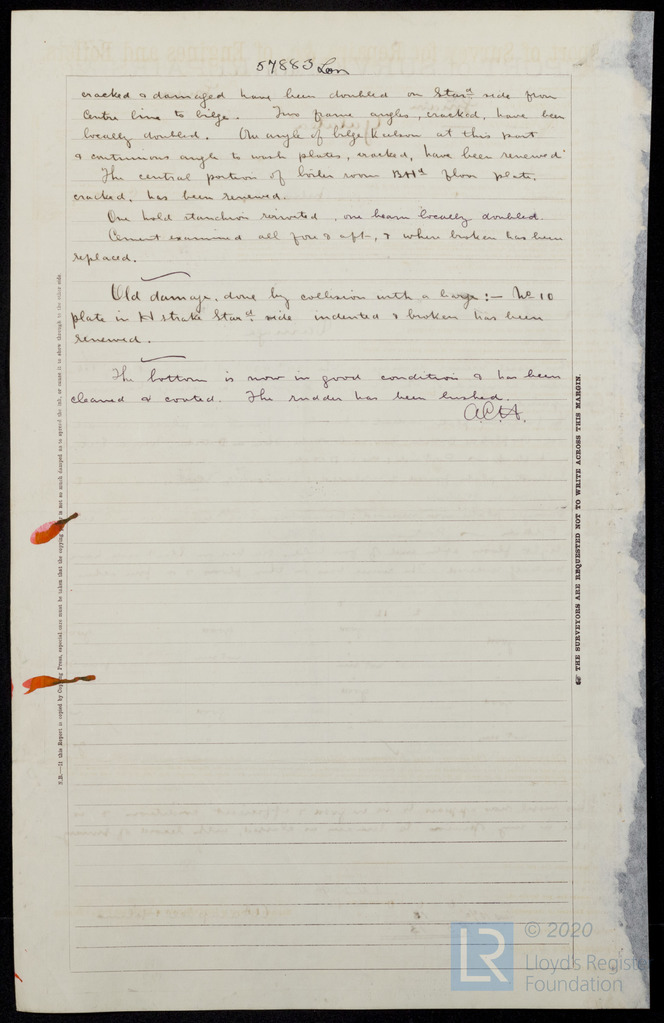 57883 Lon
cracked & damaged have been doubled on Starᵈ side from
Centre line to bilge. Two frame angles, cracked, have been
locally doubled. One angle of bilge keelson at this part
& continuous angle to wash plates, cracked, have been renewed.
The central portion of boiler room BHᵈ floor plate,
cracked, has been renewed.
One hold stanchion rerivited, one beam locally doubled.
Cement examined all fore & aft, & where broken has been
replaced.
Old damage, done by collision with a barge:— No 10
plate in H strake Starᵈ side indented & broken has been
renewed.
The bottom is now in good condition & has been
cleaned & coated. The rudder has been bushed.
N.B.—If this Report is copied by Copying Press, especial care must be taken that the copying is not so much damped as to spread the ink, or cause it to show through to the other side.
☞ THE SURVEYORS ARE REQUESTED NOT TO WRITE ACROSS THIS MARGIN.
LR © 2020
Lloyd's Register
Foundation